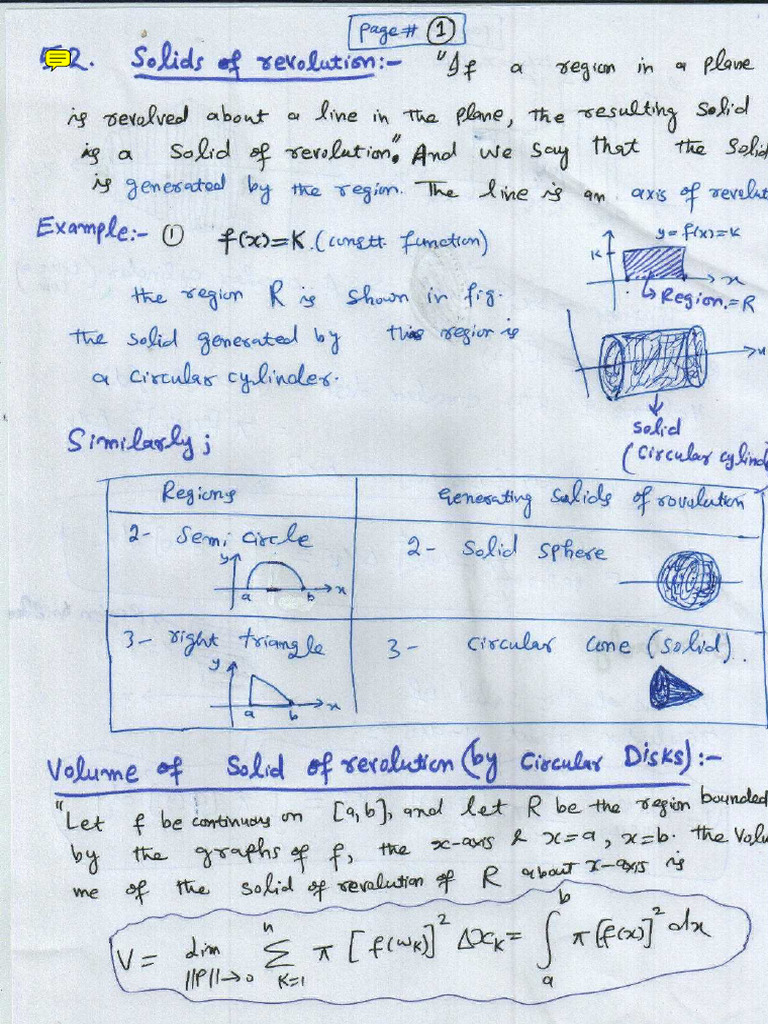 Page # 1
2. Solids of revolution:- "If a region in a plane
is revolved about a line in the plane, the resulting solid
is a solid of revolution". And we say that the Solid
is generated by the region. The line is an axis of revolut
Example:- ① f(x)=K. (constt. function)
y=f(x)=K
K
x
Region.=R
the region R is shown in fig.
the solid generated by this region is
a circular cylinder.
x
solid
(Circular cylind
Similarly;
Regions
Generating Solids of rovolution
2- Semi circle
y
a b x
2- Solid sphere
3- right triangle
y
a b x
3- circular cone (solid).
Volume of Solid of revolution (by Circular Disks):-
"Let f be continuous on [a,b], and let R be the region bounded
by the graphs of f, the x-axis & x=a, x=b. the Volu
me of the solid of revolution of R about x-axis is
V = lim ||P||→0 n Σ K=1 π [f(wK)]² ΔxK = ∫ a b π [f(x)]² dx